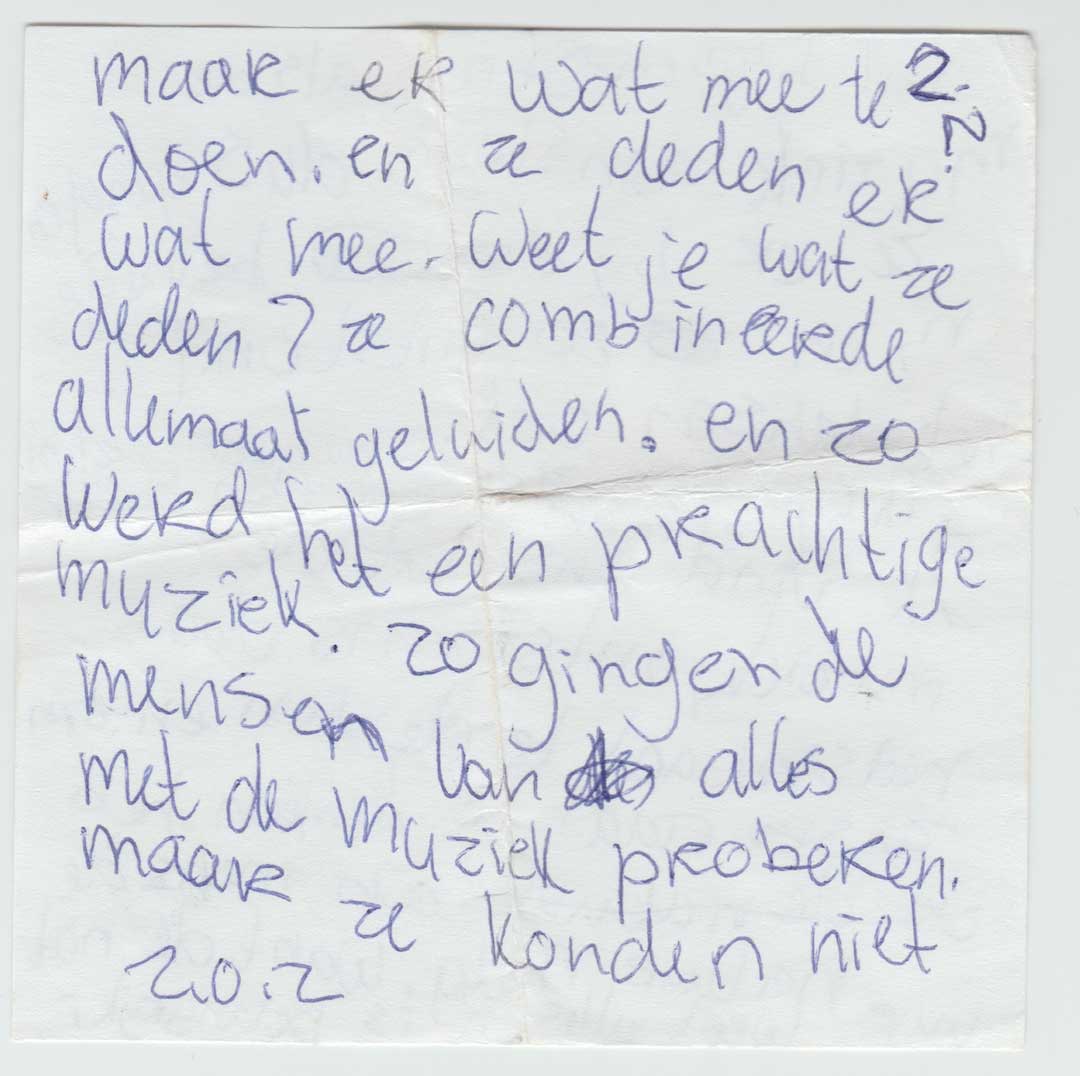 maar er wat mee te 2.
doen. en ze deden er
wat mee. Weet je wat ze
deden? ze combineerde
allemaal geluiden. en zo
werd het een prachtige
muziek. zo gingen de
mensen van alles
met de muziek proberen.
maar ze konden niet
z.o.z